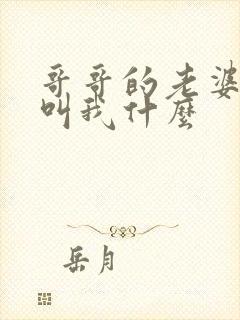 哥哥的老婆
叫我什麼
岳月